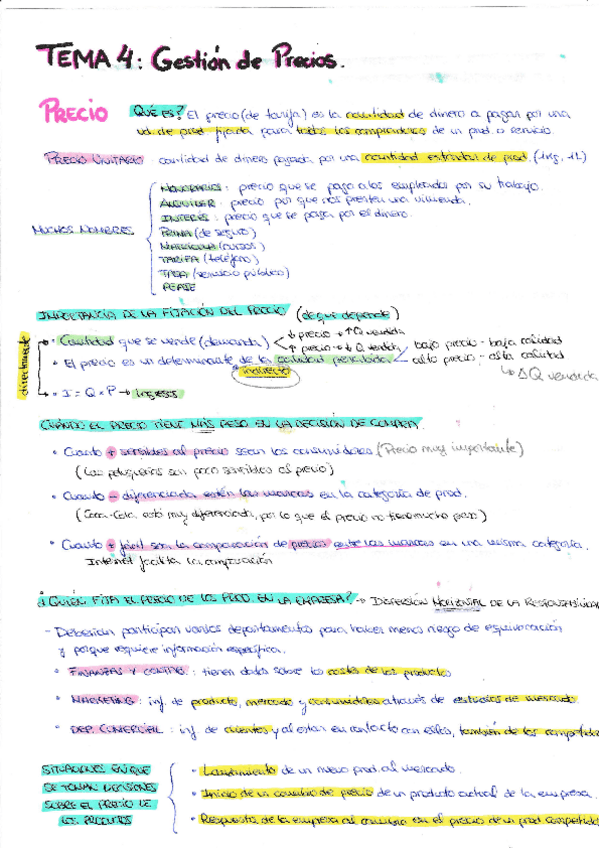 TEMA 4: Gestión de Precios.
PRECIO QUÉ ES? El precio (de tarifa) es la cantidad de dinero a pagar por una
ud. de prod. fijada para todos los compradores de un prod. o servicio.
PRECIO UNITARIO cantidad de dinero pagada por una cantidad estándar de prod. (1kg, 1L)
MUCHOS NOMBRES
HONORARIOS: precio que se paga a los empleados por su trabajo.
ALQUILER: precio por que nos presten una vivienda.
INTERÉS: precio que se paga por el dinero.
PRIMA (de seguro)
MATRICULA (cursos)
TARIFA (teléfono)
TASA (servicio público)
PEAJE
IMPORTANCIA DE LA FIJACIÓN DEL PRECIO (de qué depende)
directamente
• Cantidad que se vende (demanda) ↓ precio → ↑ Q vendida
↑ precio → ↓ Q vendida
• El precio es un determinante de la calidad percibida bajo precio - baja calidad
alto precio - alta calidad
indirecto
↳ Δ Q vendida
• I = Q × P → ingresos
CUÁNDO EL PRECIO TIENE MÁS PESO EN LA DECISIÓN DE COMPRA.
• Cuanto + sensibles al precio sean los consumidores (Precio muy importante)
(Las peluquerías son poco sensibles al precio)
• Cuanto - diferenciada estén las marcas en la categoría de prod.
(Coca-Cola está muy diferenciada, por lo que el precio no tiene mucho peso)
• Cuanto + fácil sea la comparación de precios entre las marcas en una misma categoría.
Internet facilita la comparación
¿QUIÉN FIJA EL PRECIO DE LOS PROD EN LA EMPRESA? → DISPERSIÓN HORIZONTAL DE LA
- Deberían participar varios departamentos para haber menos riesgo de equivocación
y porque requiere información específica.
• FINANZAS Y CONTAB.: tienen datos sobre los costes de los productos
• MARKETING: inf. de producto, mercado y consumidores a través de estudios de mercado.
• DEP. COMERCIAL: inf. de clientes y al estar en contacto con ellos, también de los
SITUACIONES EN QUE
SE TOMAN DECISIONES
SOBRE EL PRECIO DE
LOS PRODUCTOS
• Lanzamiento de un nuevo prod. al mercado.
• Inicio de un cambio de precio de un producto actual de la empresa.
• Respuesta de la empresa al cambio en el precio de un prod.